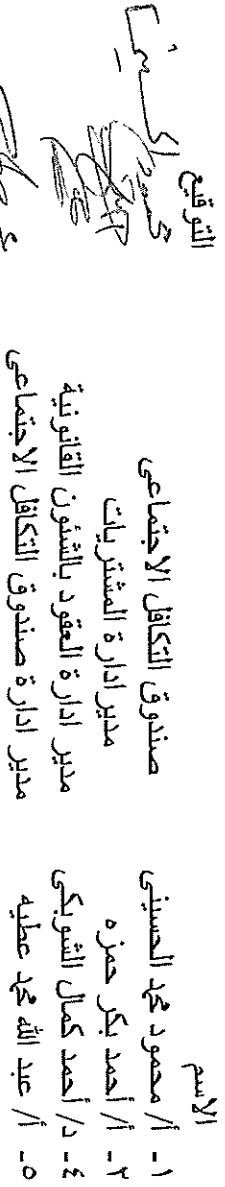 الاسم التوقيع
١- أ/ محمود محمد الحسينى صندوق التكافل الاجتماعى
٢- أ/ أحمد بكر حمزه مدير ادارة المشتريات
٤- د/ أحمد كمال الشوبكى مدير ادارة العقود بالشئون القانونية
٥- أ/ عبد الله محمد عطيه مدير ادارة صندوق التكافل الاجتماعى